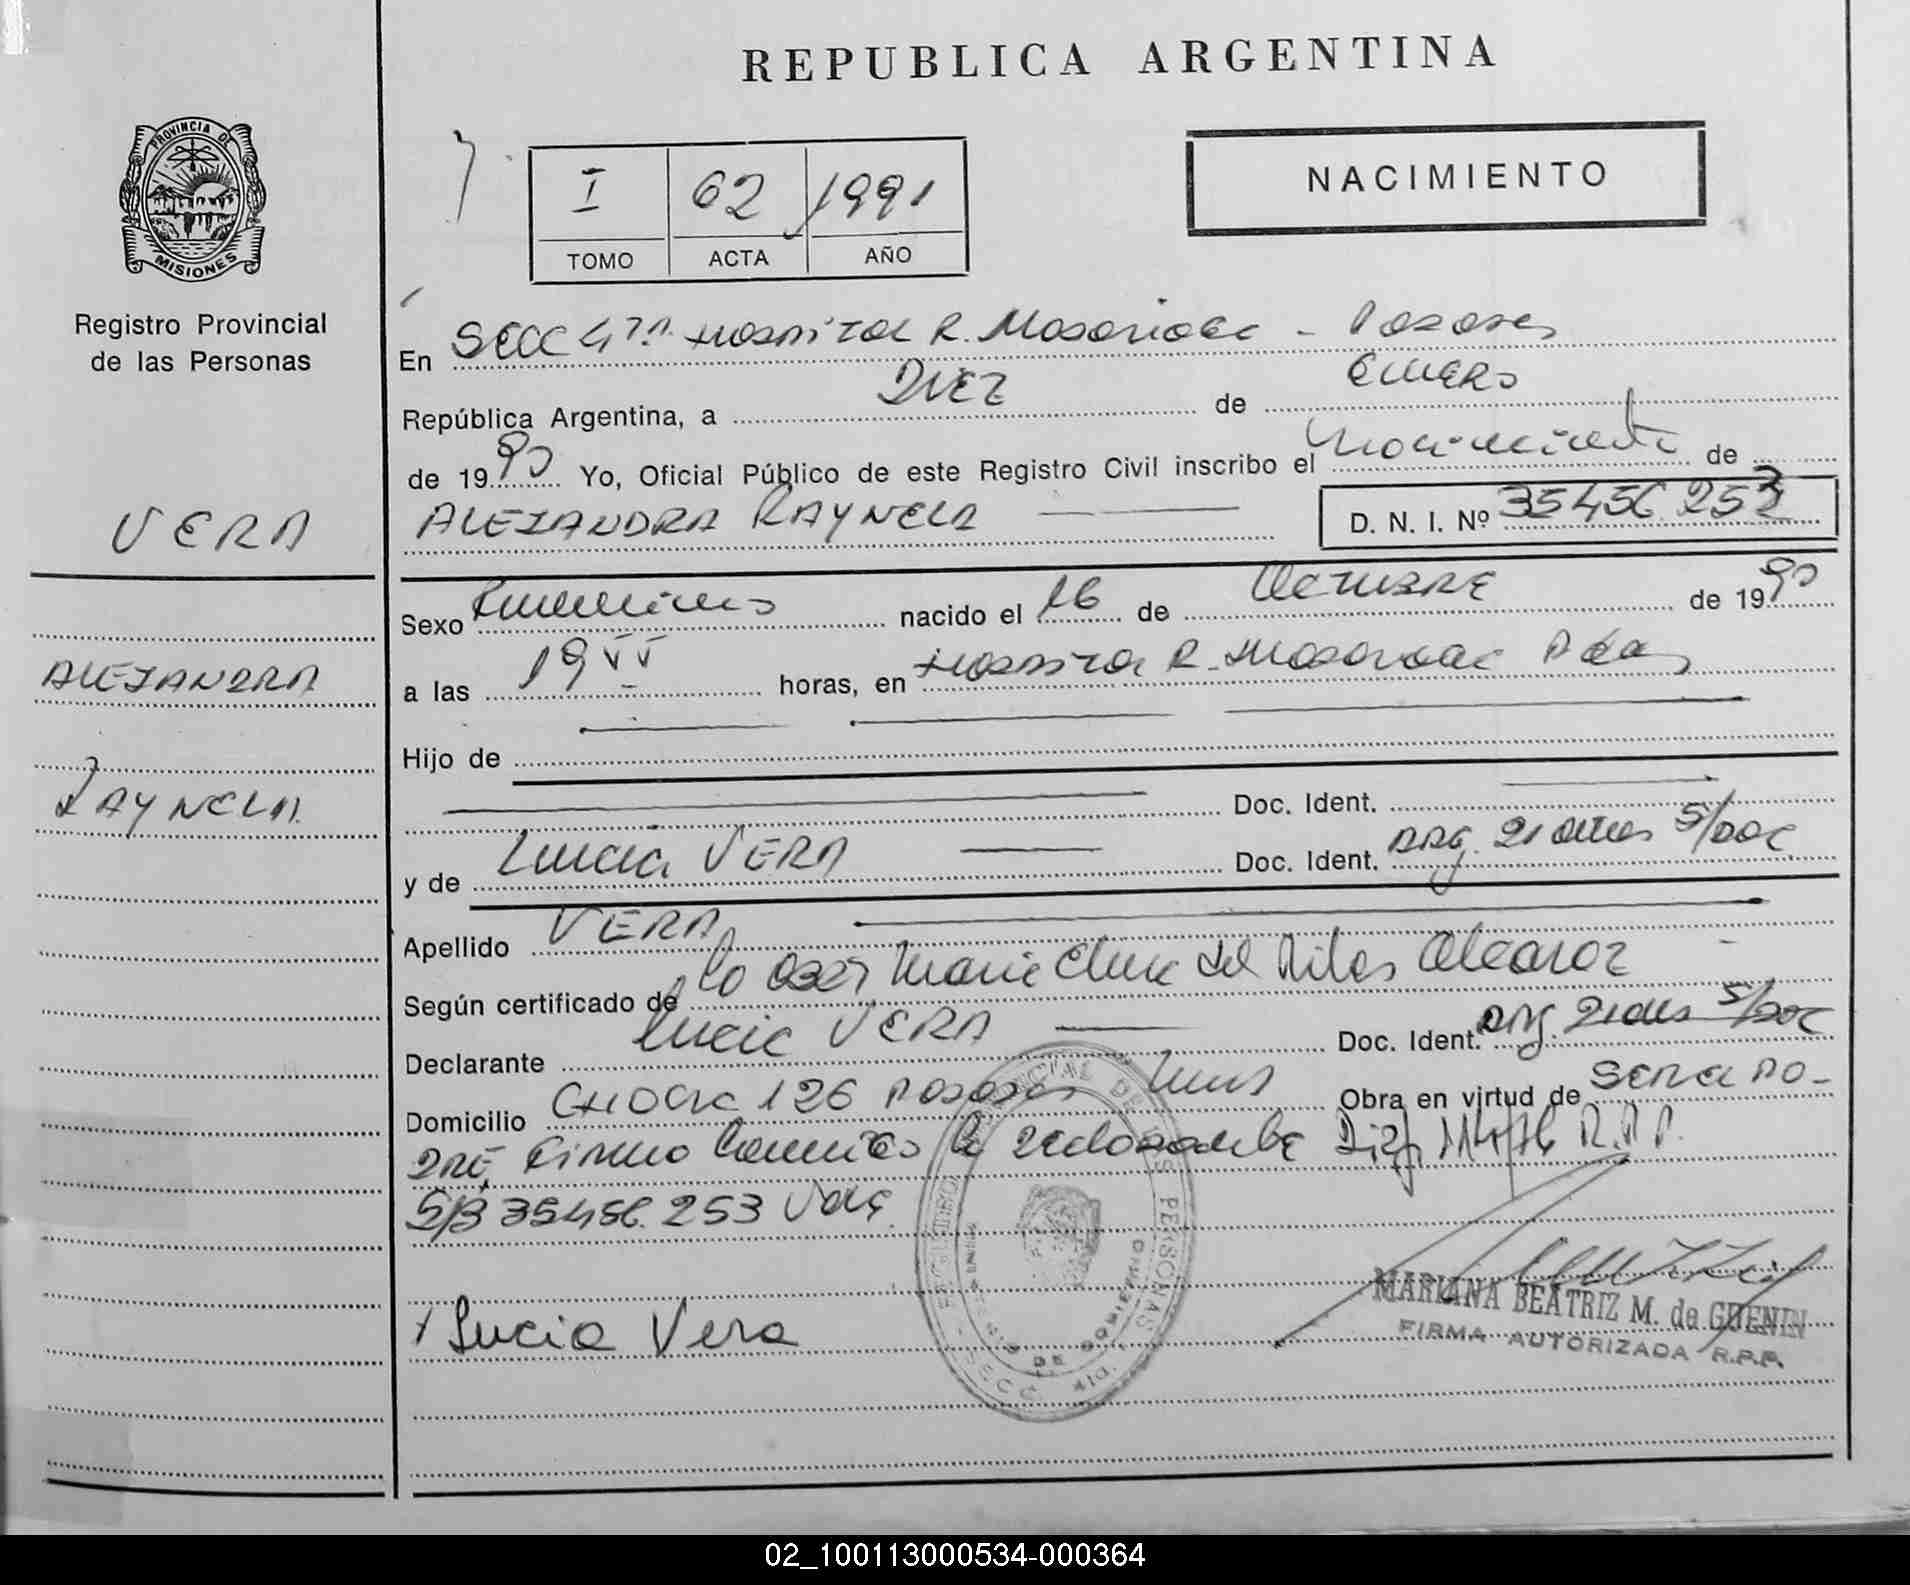 REPUBLICA ARGENTINA
PROVINCIA DE
MISIONES
Registro Provincial
de las Personas
I 62 1991
TOMO ACTA AÑO
NACIMIENTO
En SECC 4ta Hospital R. Madariaga - Posadas
República Argentina, a DIEZ de ENERO
de 1990 Yo, Oficial Público de este Registro Civil inscribo el nacimiento de
ALEJANDRA RAYNELA
D. N. I. Nº 35456.253
VERA
ALEJANDRA
RAYNELA
Sexo Femenino nacido el 16 de OCTUBRE de 1990
a las 19 horas, en Hospital R. Madariaga Pdas
Hijo de
Doc. Ident.
y de Lucia VERA Doc. Ident. ARG. 21 años S/DOC
Apellido VERA
Según certificado de la Obst Maria Elena del Alcaraz
Declarante Lucia VERA Doc. Ident. Arg. 21 años S/DOC
Domicilio 126 Posadas Mnes Obra en virtud de
R.P.P.
35456.253 Vale
Lucia Vera
PERSONAS
MARIANA BEATRIZ M. de GUENIN
FIRMA AUTORIZADA R.P.P.
02_100113000534-000364